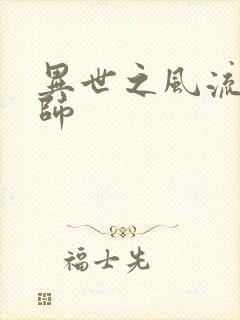 異世之風流
師
福士先